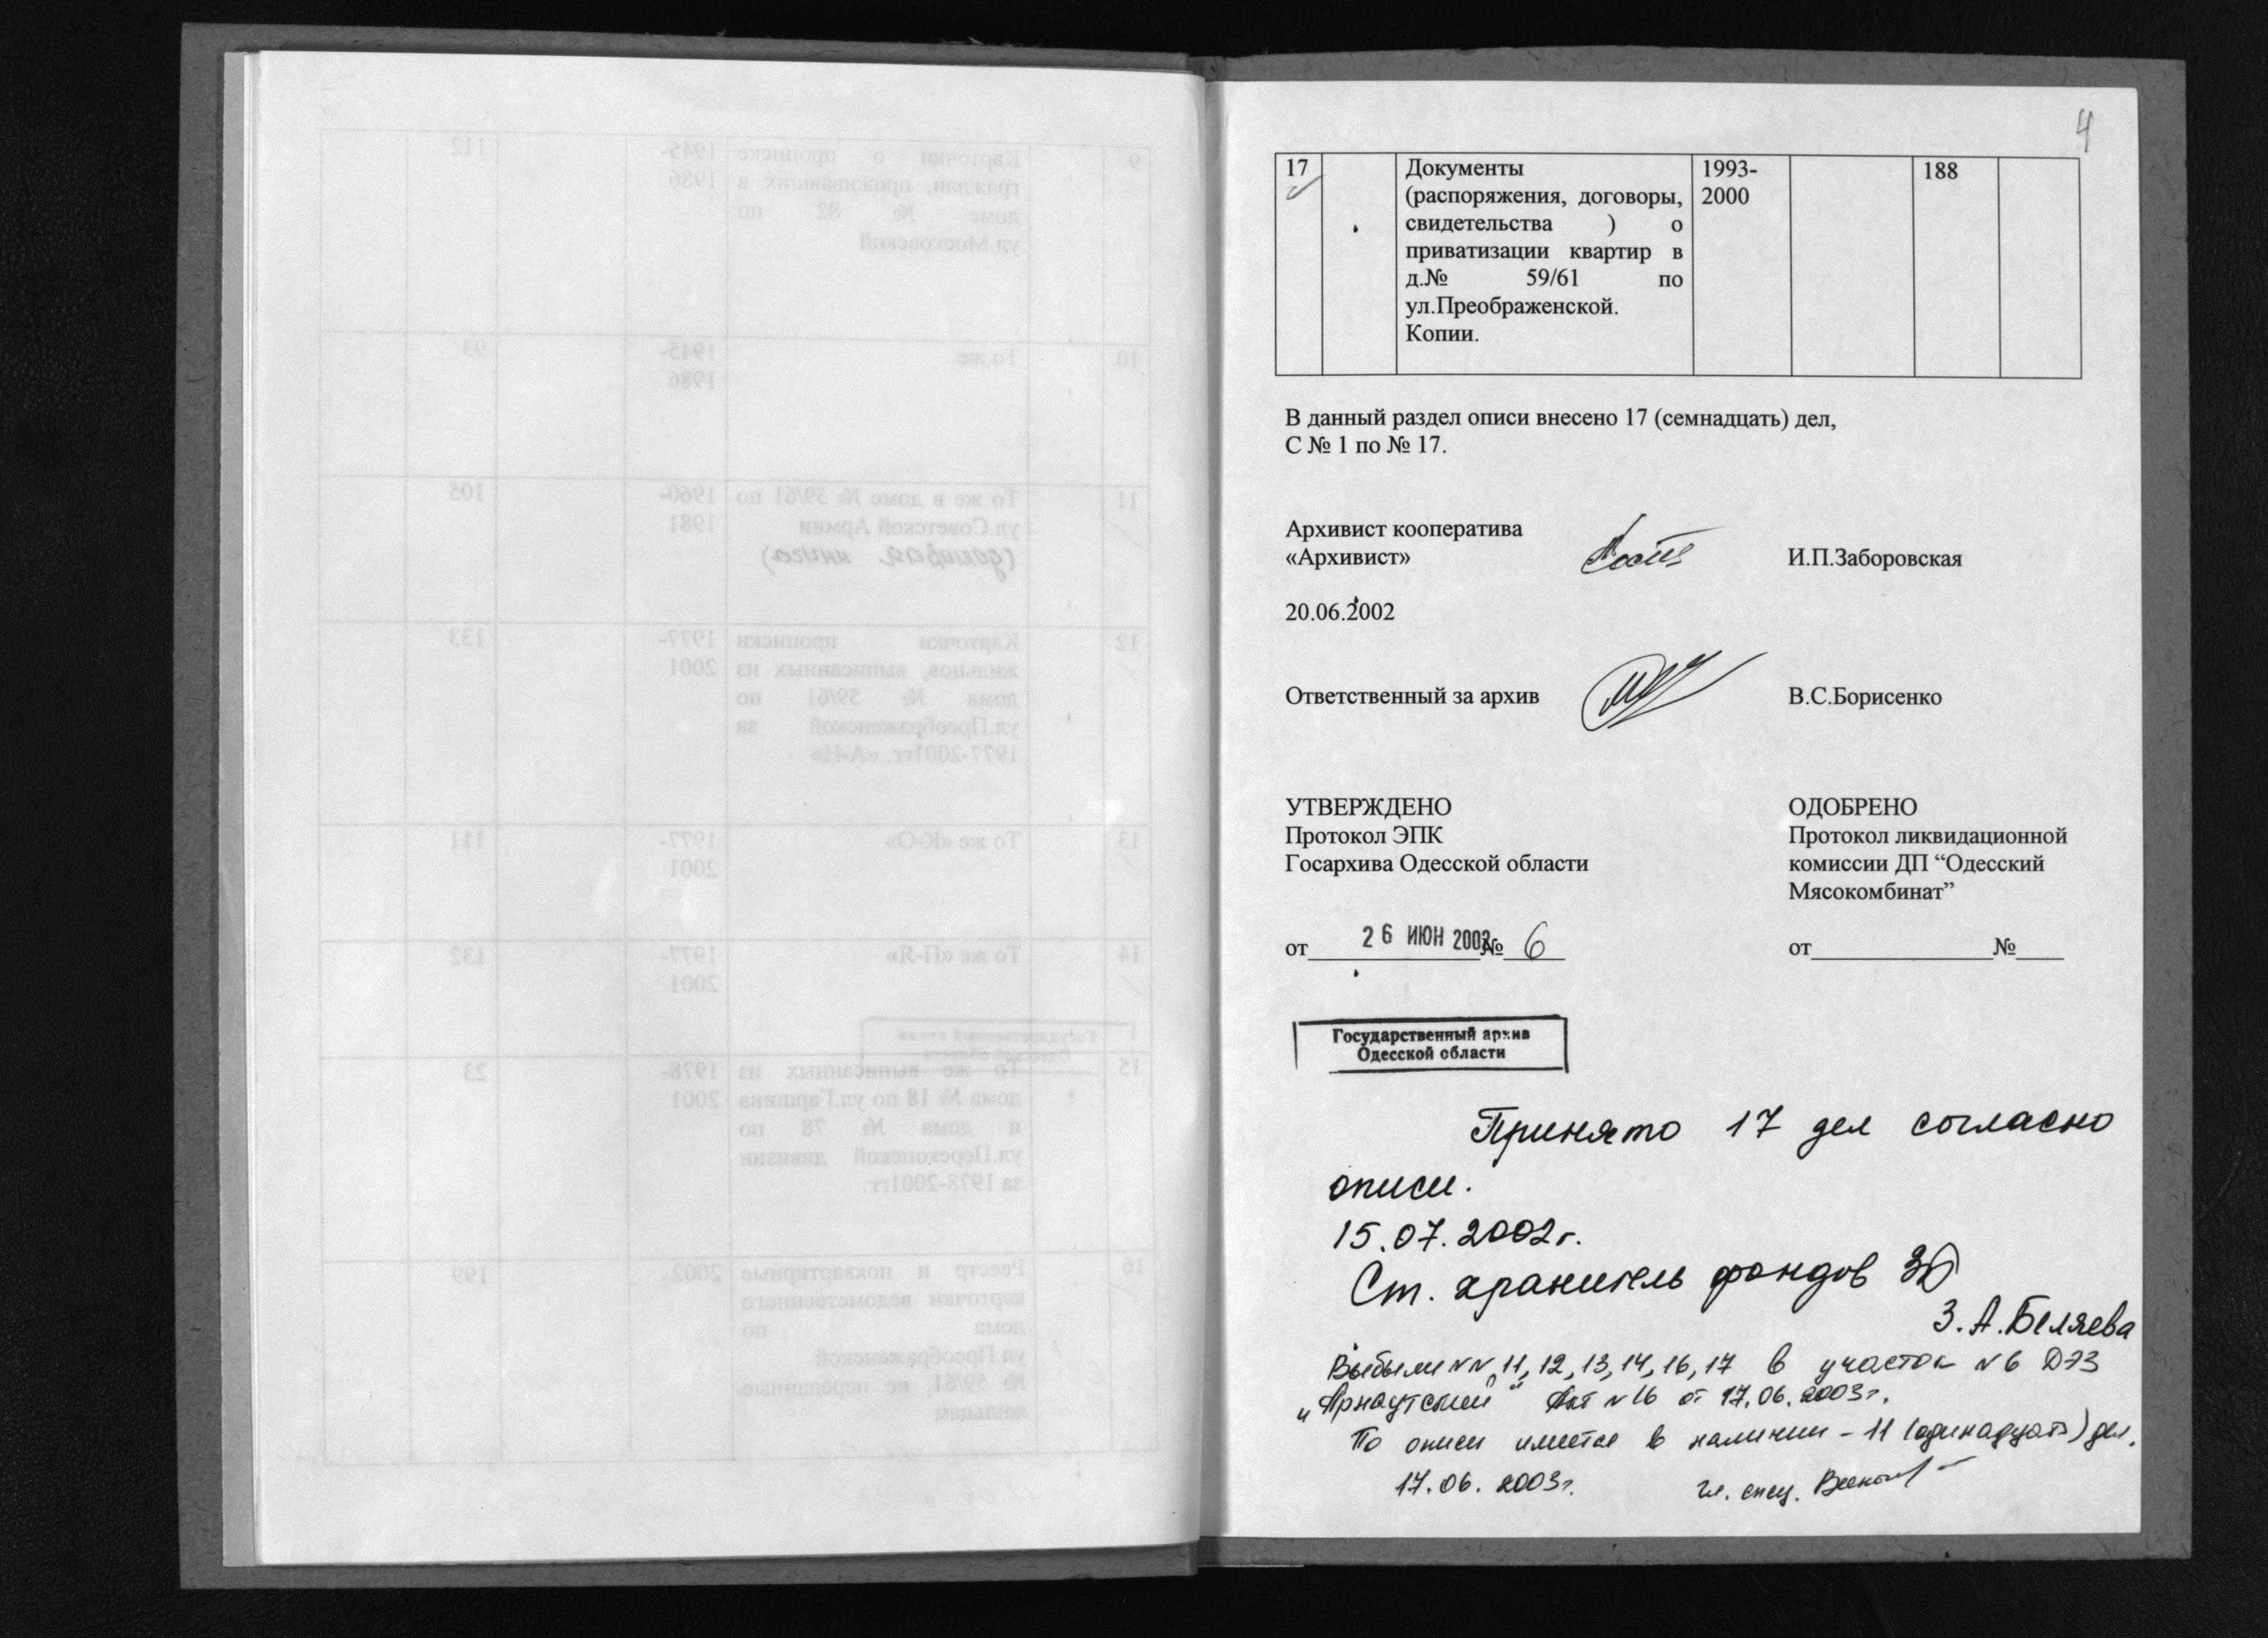 4
17 Документы 1993- 188
(распоряжения, договоры, 2000
свидетельства ) о
приватизации квартир в
д.№ 59/61 по
ул.Преображенской.
Копии.
В данный раздел описи внесено 17 (семнадцать) дел,
С № 1 по № 17.
Архивист кооператива
«Архивист» И.П.Заборовская
20.06.2002
Ответственный за архив В.С.Борисенко
УТВЕРЖДЕНО
Протокол ЭПК
Госархива Одесской области
от 26 ИЮН 2002 № 6
ОДОБРЕНО
Протокол ликвидационной
комиссии ДП “Одесский
Мясокомбинат”
от______________№____
Государственный архив
Одесской области
Принято 17 дел согласно
описи.
15.07.2002г.
Ст. хранитель фондов
З.А.Беляева
Выбыли NN 11, 12, 13, 14, 16, 17 в участок N6 ДЭЗ
„Арнаутский“ Акт N16 от 17.06.2003г.
По описи имеется в наличии - 11 (одинадцать) дел.
17.06.2003г. Гл. спец.